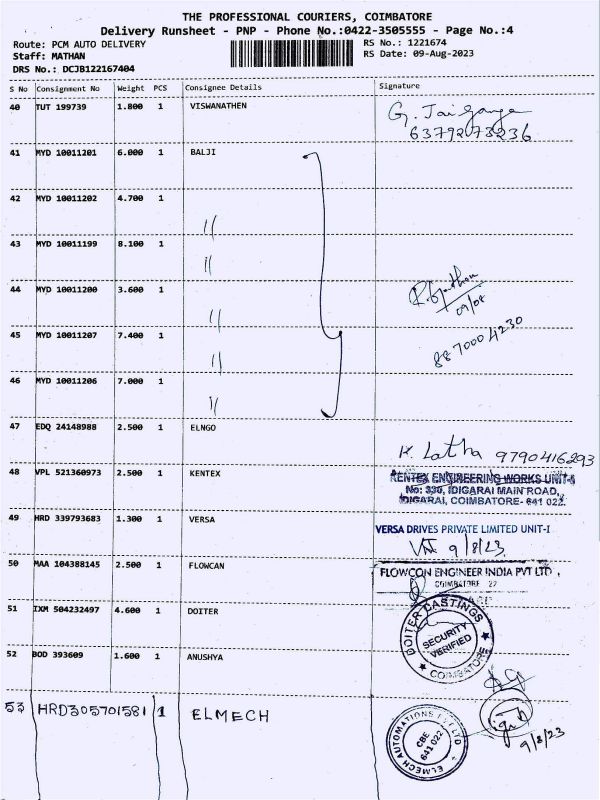 THE PROFESSIONAL COURIERS, COIMBATORE
Delivery Runsheet - PNP - Phone No.:0422-3505555 - Page No.:4
Route: PCM AUTO DELIVERY
RS No.: 1221674
Staff: MATHAN
RS Date: 09-Aug-2023
DRS No.: DCJB122167404
S No Consignment No Weight PCS Consignee Details Signature
40 TUT 199739 1.800 1 VISWANATHEN
6379273236
41 MYD 10011201 6.000 1 BALJI
42 MYD 10011202 4.700 1 〃
43 MYD 10011199 8.100 1 〃
44 MYD 10011200 3.600 1 〃
09/08
45 MYD 10011207 7.400 1 〃
88 7000 4230
46 MYD 10011206 7.000 1 〃
47 EDQ 24148988 2.500 1 ELNGO
K. Latha 9790416293
48 VPL 521360973 2.500 1 KENTEX
KENTEX ENGINEERING WORKS UNIT-
No: 330, IDIGARAI MAIN ROAD,
IDIGARAI, COIMBATORE- 641 022.
49 HRD 339793683 1.300 1 VERSA
VERSA DRIVES PRIVATE LIMITED UNIT-I
9/8/23
50 MAA 104388145 2.500 1 FLOWCAN
FLOWCON ENGINEER INDIA PVT LTD.
COIMBATORE 22
51 IXM 504232497 4.600 1 DOITER
DOITER CASTINGS
SECURITY
VERIFIED
COIMBATORE
52 BOD 393609 1.600 1 ANUSHYA
53 HRD305701581 1 ELMECH
ELMECH AUTOMATIONS PVT LTD
CBE
641 022
9/8/23